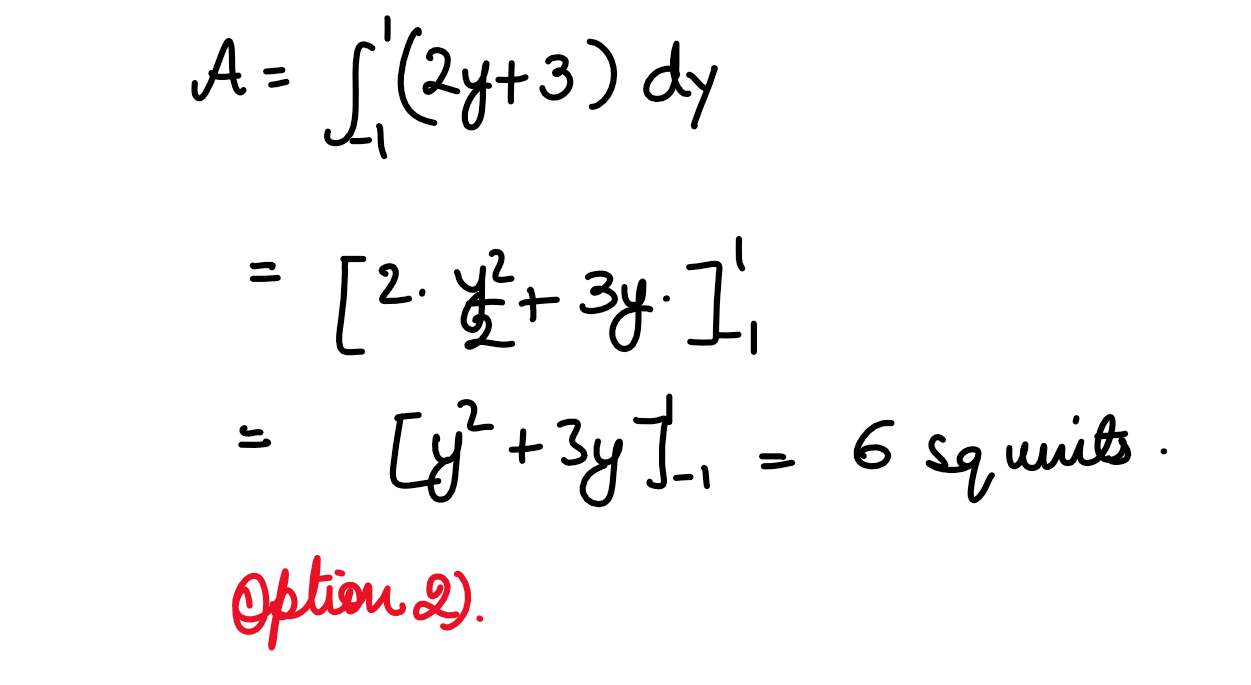 A = ∫₋₁¹ (2y+3) dy
= [2. y²/2 + 3y.]₋₁¹
= [y² + 3y]₋₁¹ = 6 sq units.
Option 2).